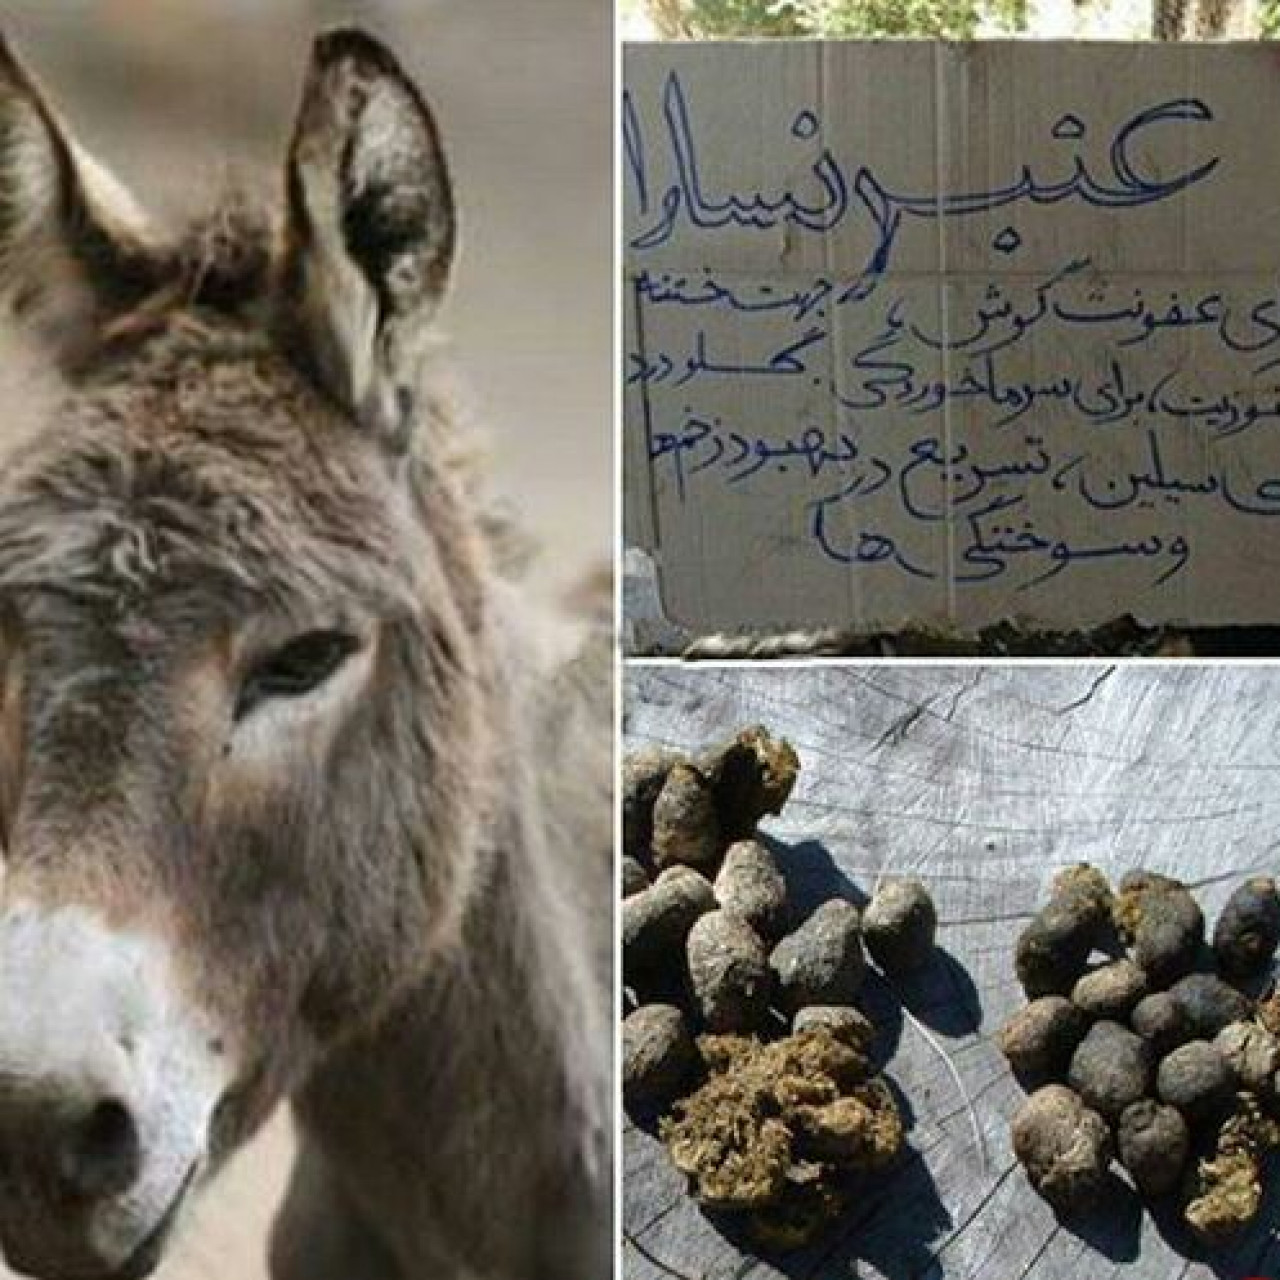 عنبر نسارا
عفونت گوش، جهت ختنه
برای سرماخوردگی گلودرد
سیلین، تسریع در بهبود زخم‌ها
و سوختگی ها